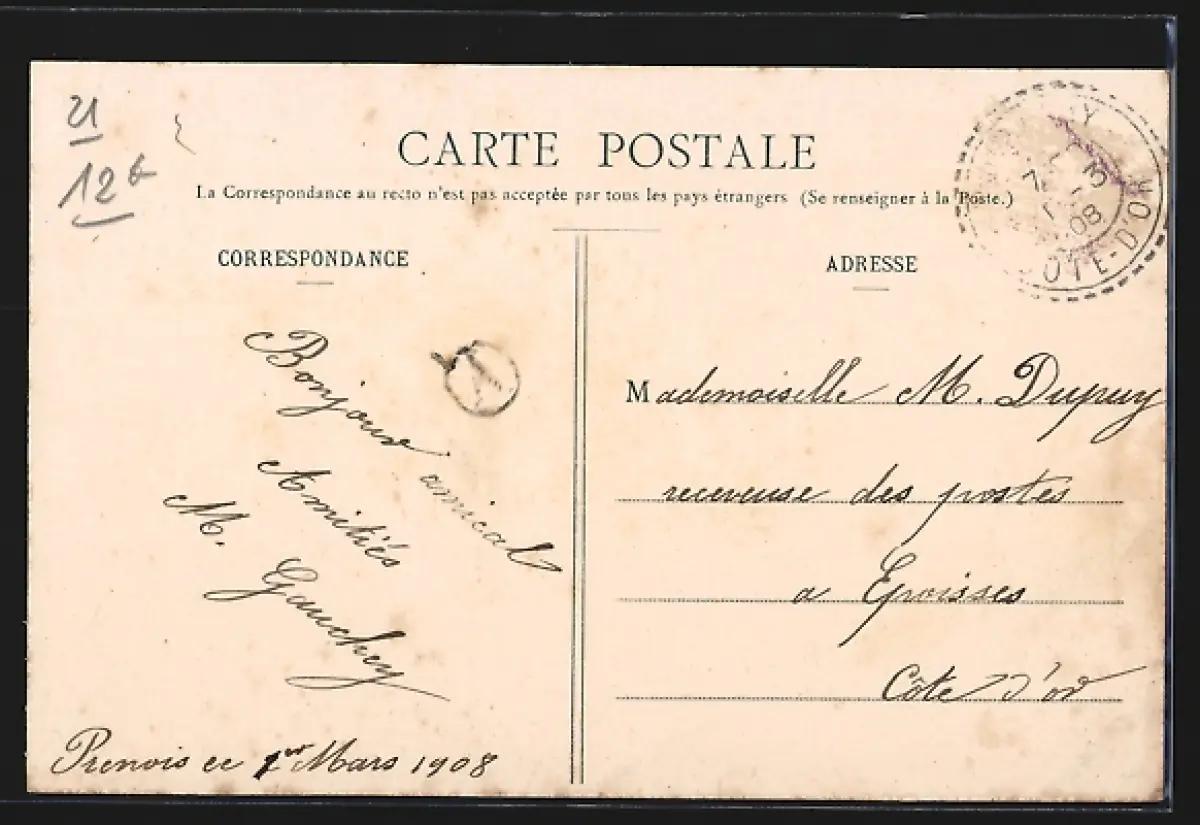 21
12
CARTE POSTALE
La Correspondance au recto n'est pas acceptée par tous les pays étrangers (Se renseigner à la Poste.)
CORRESPONDANCE
Bonjour amical
Amitiés
M. Gauchey
Prenois ce 1er Mars 1908
ADRESSE
Mademoiselle M. Dupuy
receveuse des postes
a Epoisses
Côte d'or
7 3
08
COTE-D'OR